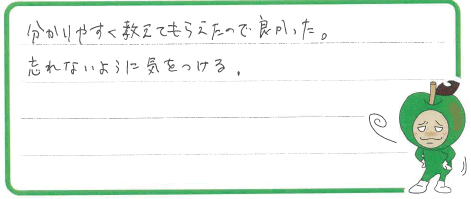 分かりやすく教えてもらえたので良かった。
忘れないように気をつける.